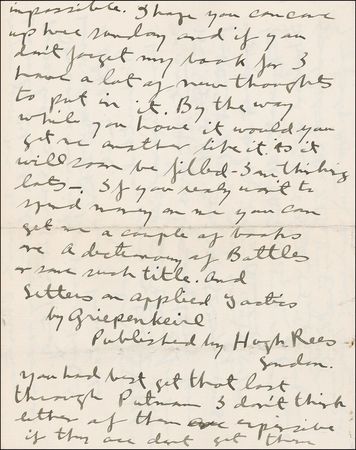 impossible. I hope you can come
up here sunday and if you
don't forget my book for I
have a lot of new thoughts
to put in it. By the way
while you have it would you
get me another like it as it
will soon be filled - I am thinking
lots -. If you realy want to
spend money on me you can
get me a couple of books
one A dictionary of Battles
or some such title. And
Letters on applied Tactics
by Griepenkeirl
Published by Hugh Rees
London.
you had best get that last
through Putnam I don't think
either of them are expensive
if they are dont get them